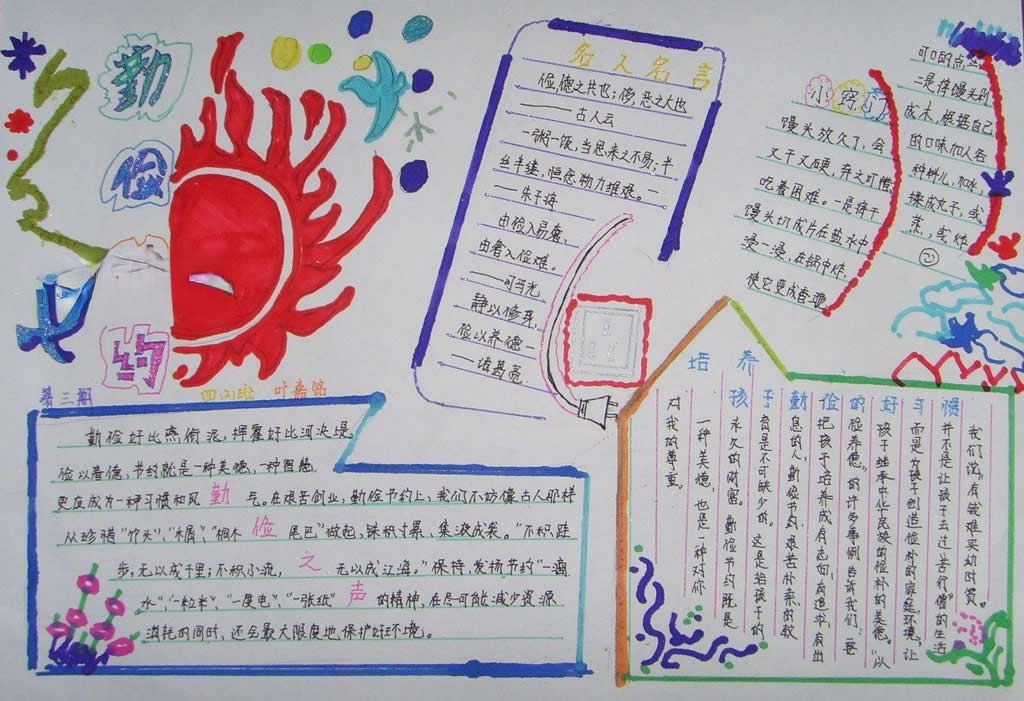 勤
俭
约
第三期 四(2)班
名人名言
俭,德之共也;侈,恶之大也
——古人云
一粥一饭,当思来之不易;半
丝半缕,恒念物力维艰。—
—朱子
由俭入易奢,
由奢入俭难。
——司马光
静以修身,
俭以养德—
—诸葛亮
小窍门
馒头放久了,会
又干又硬,弃之可惜,
吃着困难。一是将干
馒头切成片在盐水中
浸一浸,在锅中炸,
使它变成香
可口的点
二是将馒头利
成末,根据自己
的口味加入各
种料儿,加水,
揉成丸子,或
蒸,或炸
勤俭之声
勤俭好比燕衔泥,挥霍好比河决堤
俭以养德,节约就是一种美德,一种智慧
更应成为一种习惯和风气。在艰苦创业,勤俭节约上,我们不妨像古人那样
从珍惜“竹头”、“木屑”、“桐木尾巴”做起,铢积寸累、集液成裘。“不积跬
步,无以成千里;不积小流,无以成江海。”保持、发扬节约“一滴
水”、“一粒米”、“一度电”、“一张纸”的精神,在尽可能减少资源
消耗的同时,还会最大限度地保护好环境。
培养孩子勤俭的好习惯
我们说“有钱难买幼时贫。”
并不是让孩子去过“苦行僧”的生活
而是为孩子创造俭朴的家庭环境,让
孩子继承中华民族的俭朴的美德。“以
俭养德”的许多事例告诉我们:要
把孩子培养成有志向,有追求,有出
息的人,勤俭节约、艰苦朴素的教
育是不可缺少的。这是给孩子的
永久的财富。勤俭节约既是
一种美德,也是一种对你
对我的尊重。